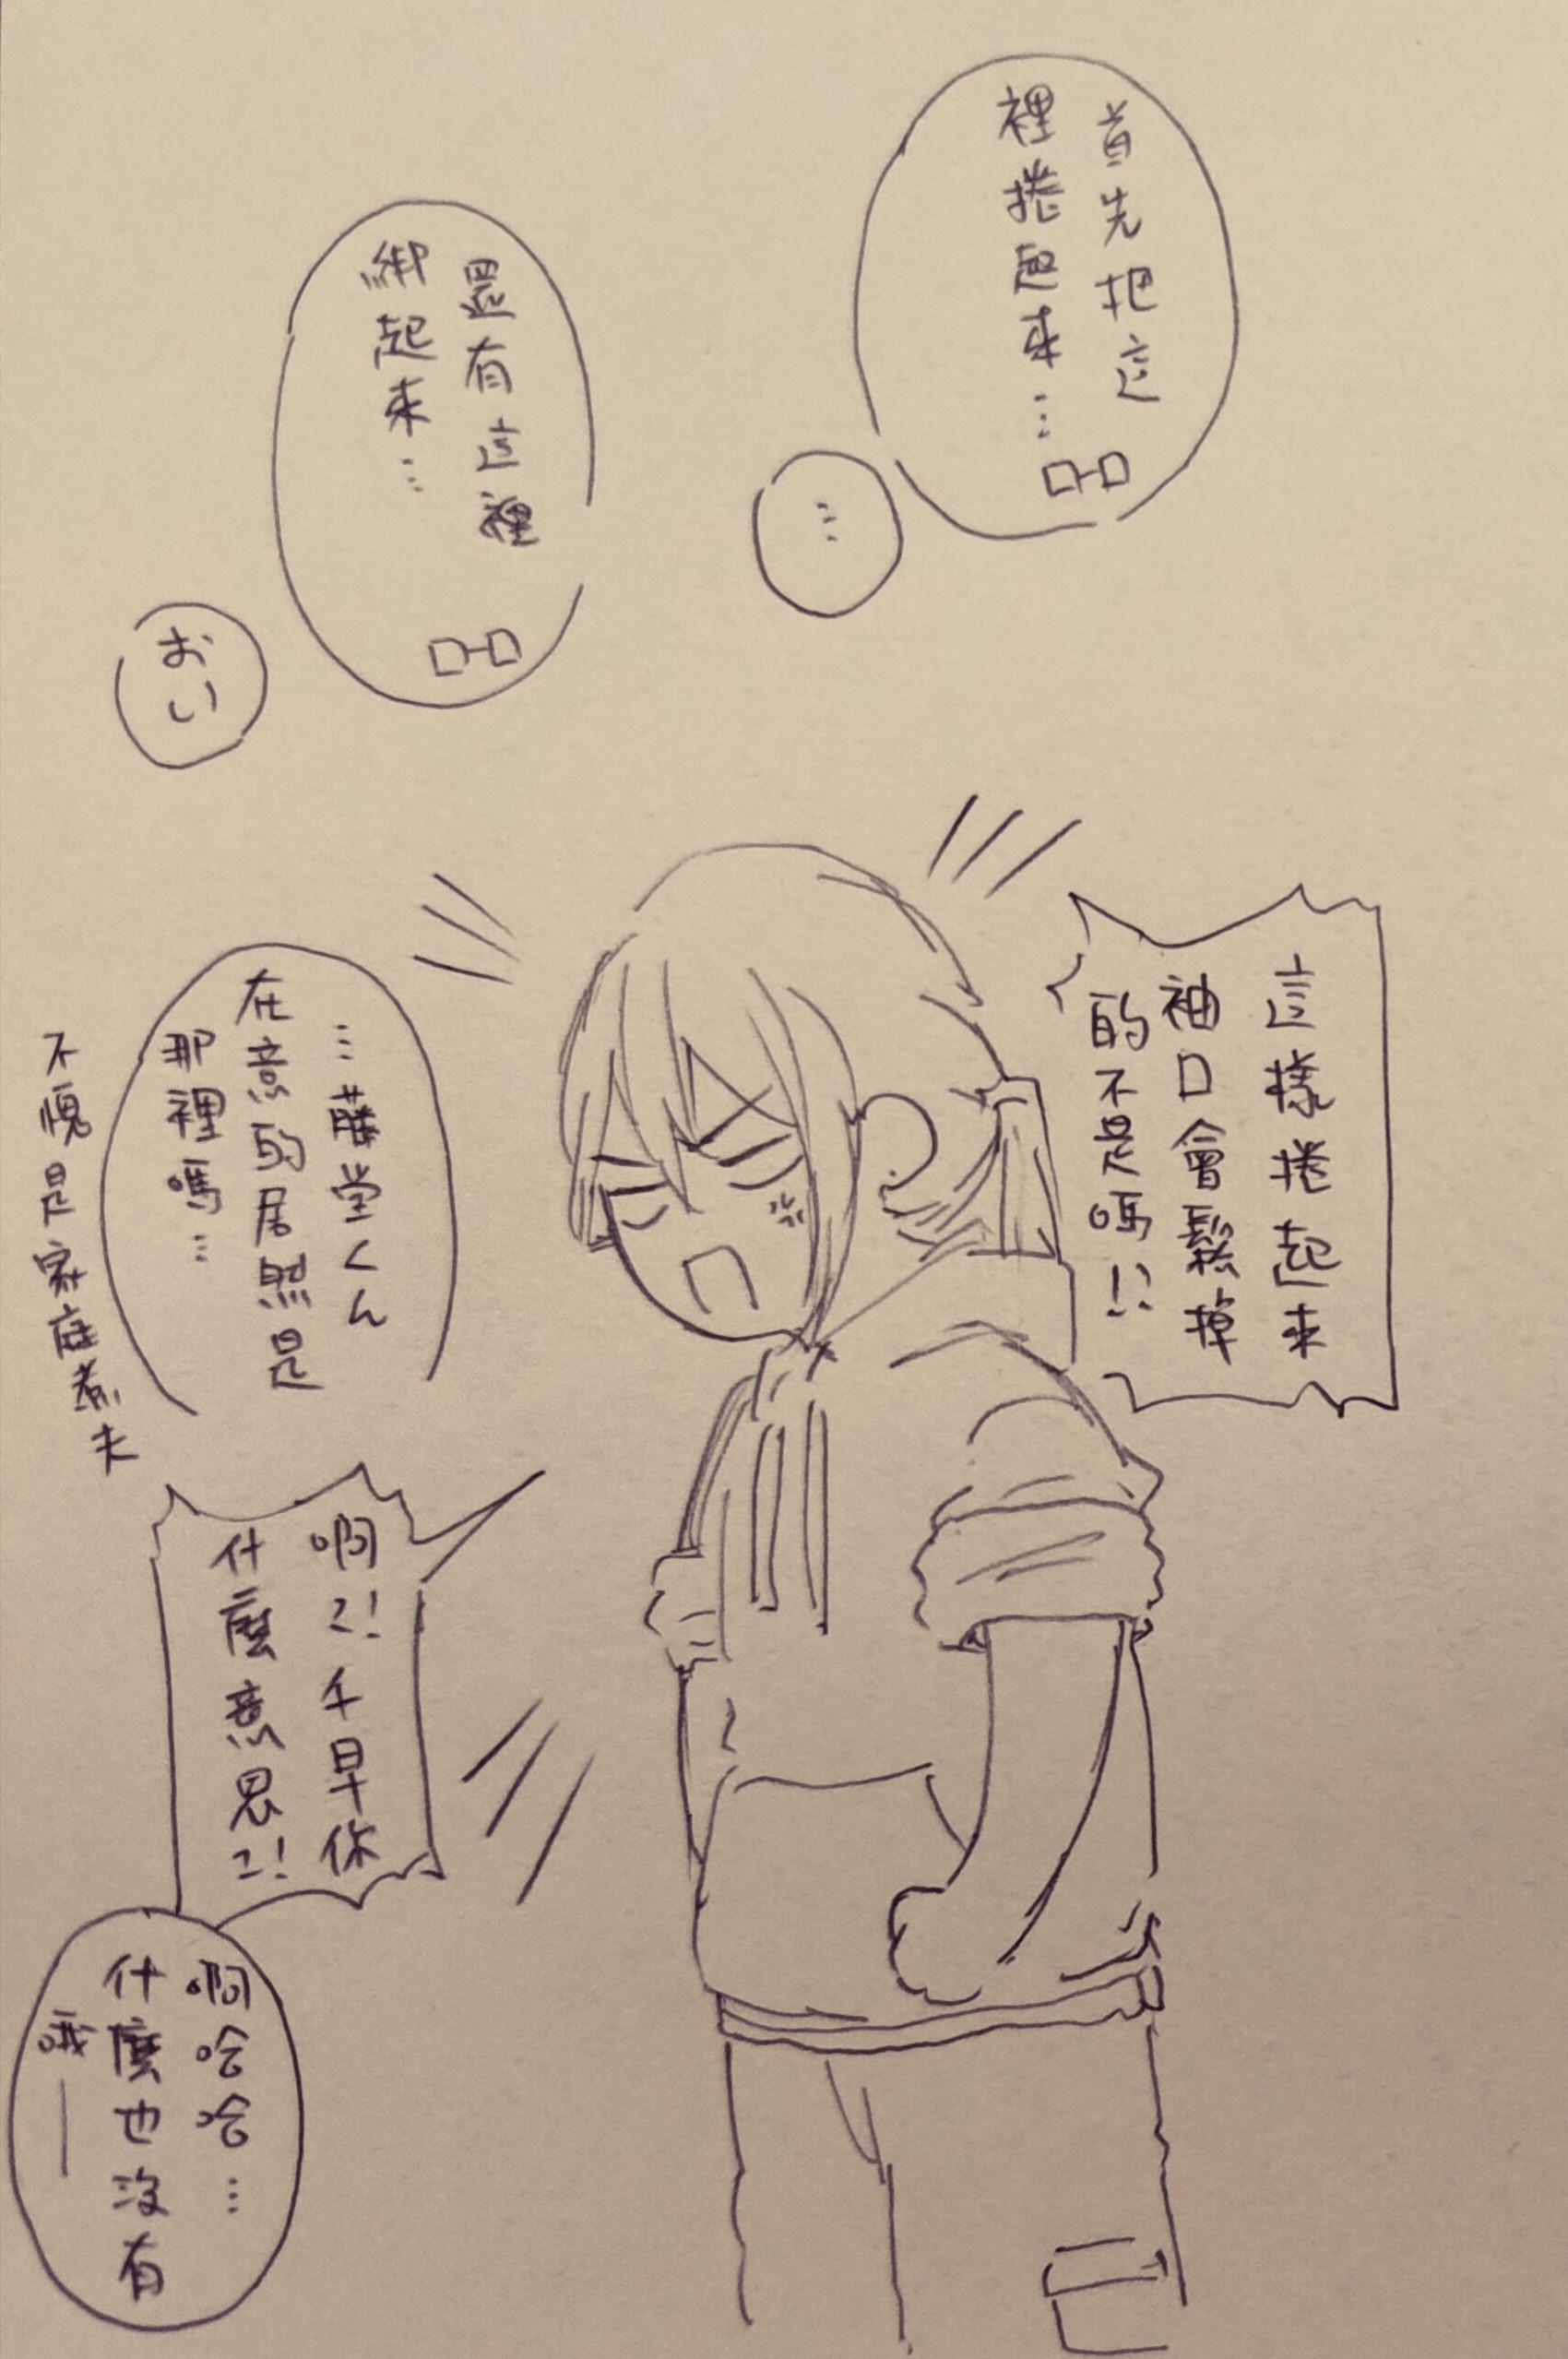 首先把這
裡捲起來…
…
還有這裡
綁起來…
おい
這樣捲起來
袖口會鬆掉
的不是嗎!?
…藤堂くん
在意的居然是
那裡嗎…
不愧是家庭煮夫
啊?!千早你
什麼意思?!
啊哈哈…
什麼也沒有
哦—